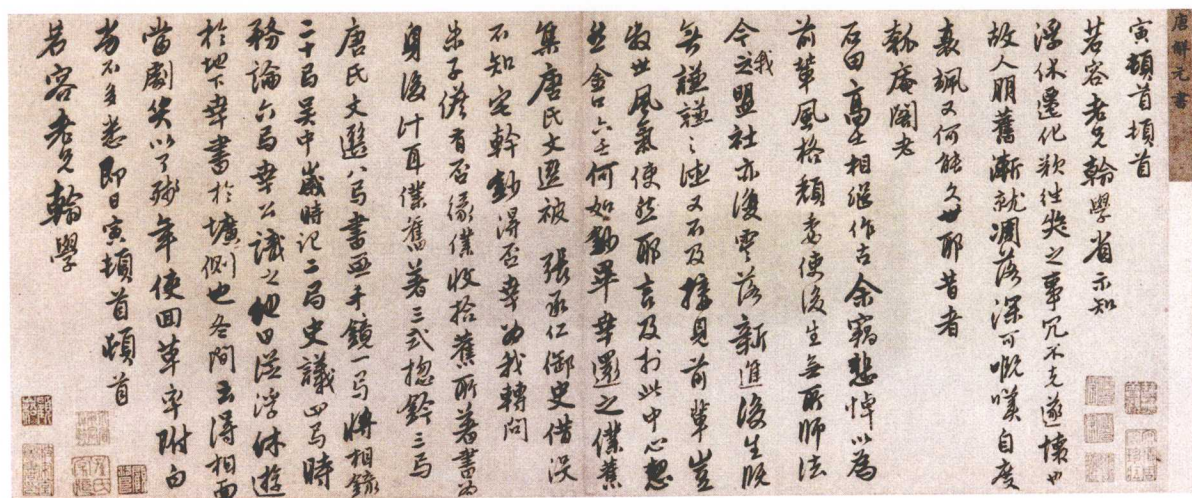 唐解元書
寅頓首頓首
若容老兄翰學省示知
浮休遷化欲往奠之事冗不克遂懷也
故人朋舊漸就凋落深可慨嘆自度
衰颯又何能久世耶昔者
瓠庵閣老
石田高士相繼作古余竊悲悼以為
前輩風格頹委使後生無所師法
今之盟社亦復零落新進後生既
我
無謙謙之德又不及接見前輩豈
世風氣使然耶言及於此中心
金口六壬何如抄畢幸還之僕舊
集唐氏文選被張承仁御史借沒
不知宅幹抄得否幸為我轉問
朱子儋有否緣僕收拾舊所著書為
身後計耳僕舊著三式捴鈐三局
唐氏文選八局書畫手鏡一局將相錄
二十局吳中歲時記二局史議四局時
務論六局幸公識之他日從浮休遊
於地下幸書於壙側也冬間去得相面
當劇笑以了殘年使回草率附白
者不多悉即日寅頓首頓首
若容老兄翰學